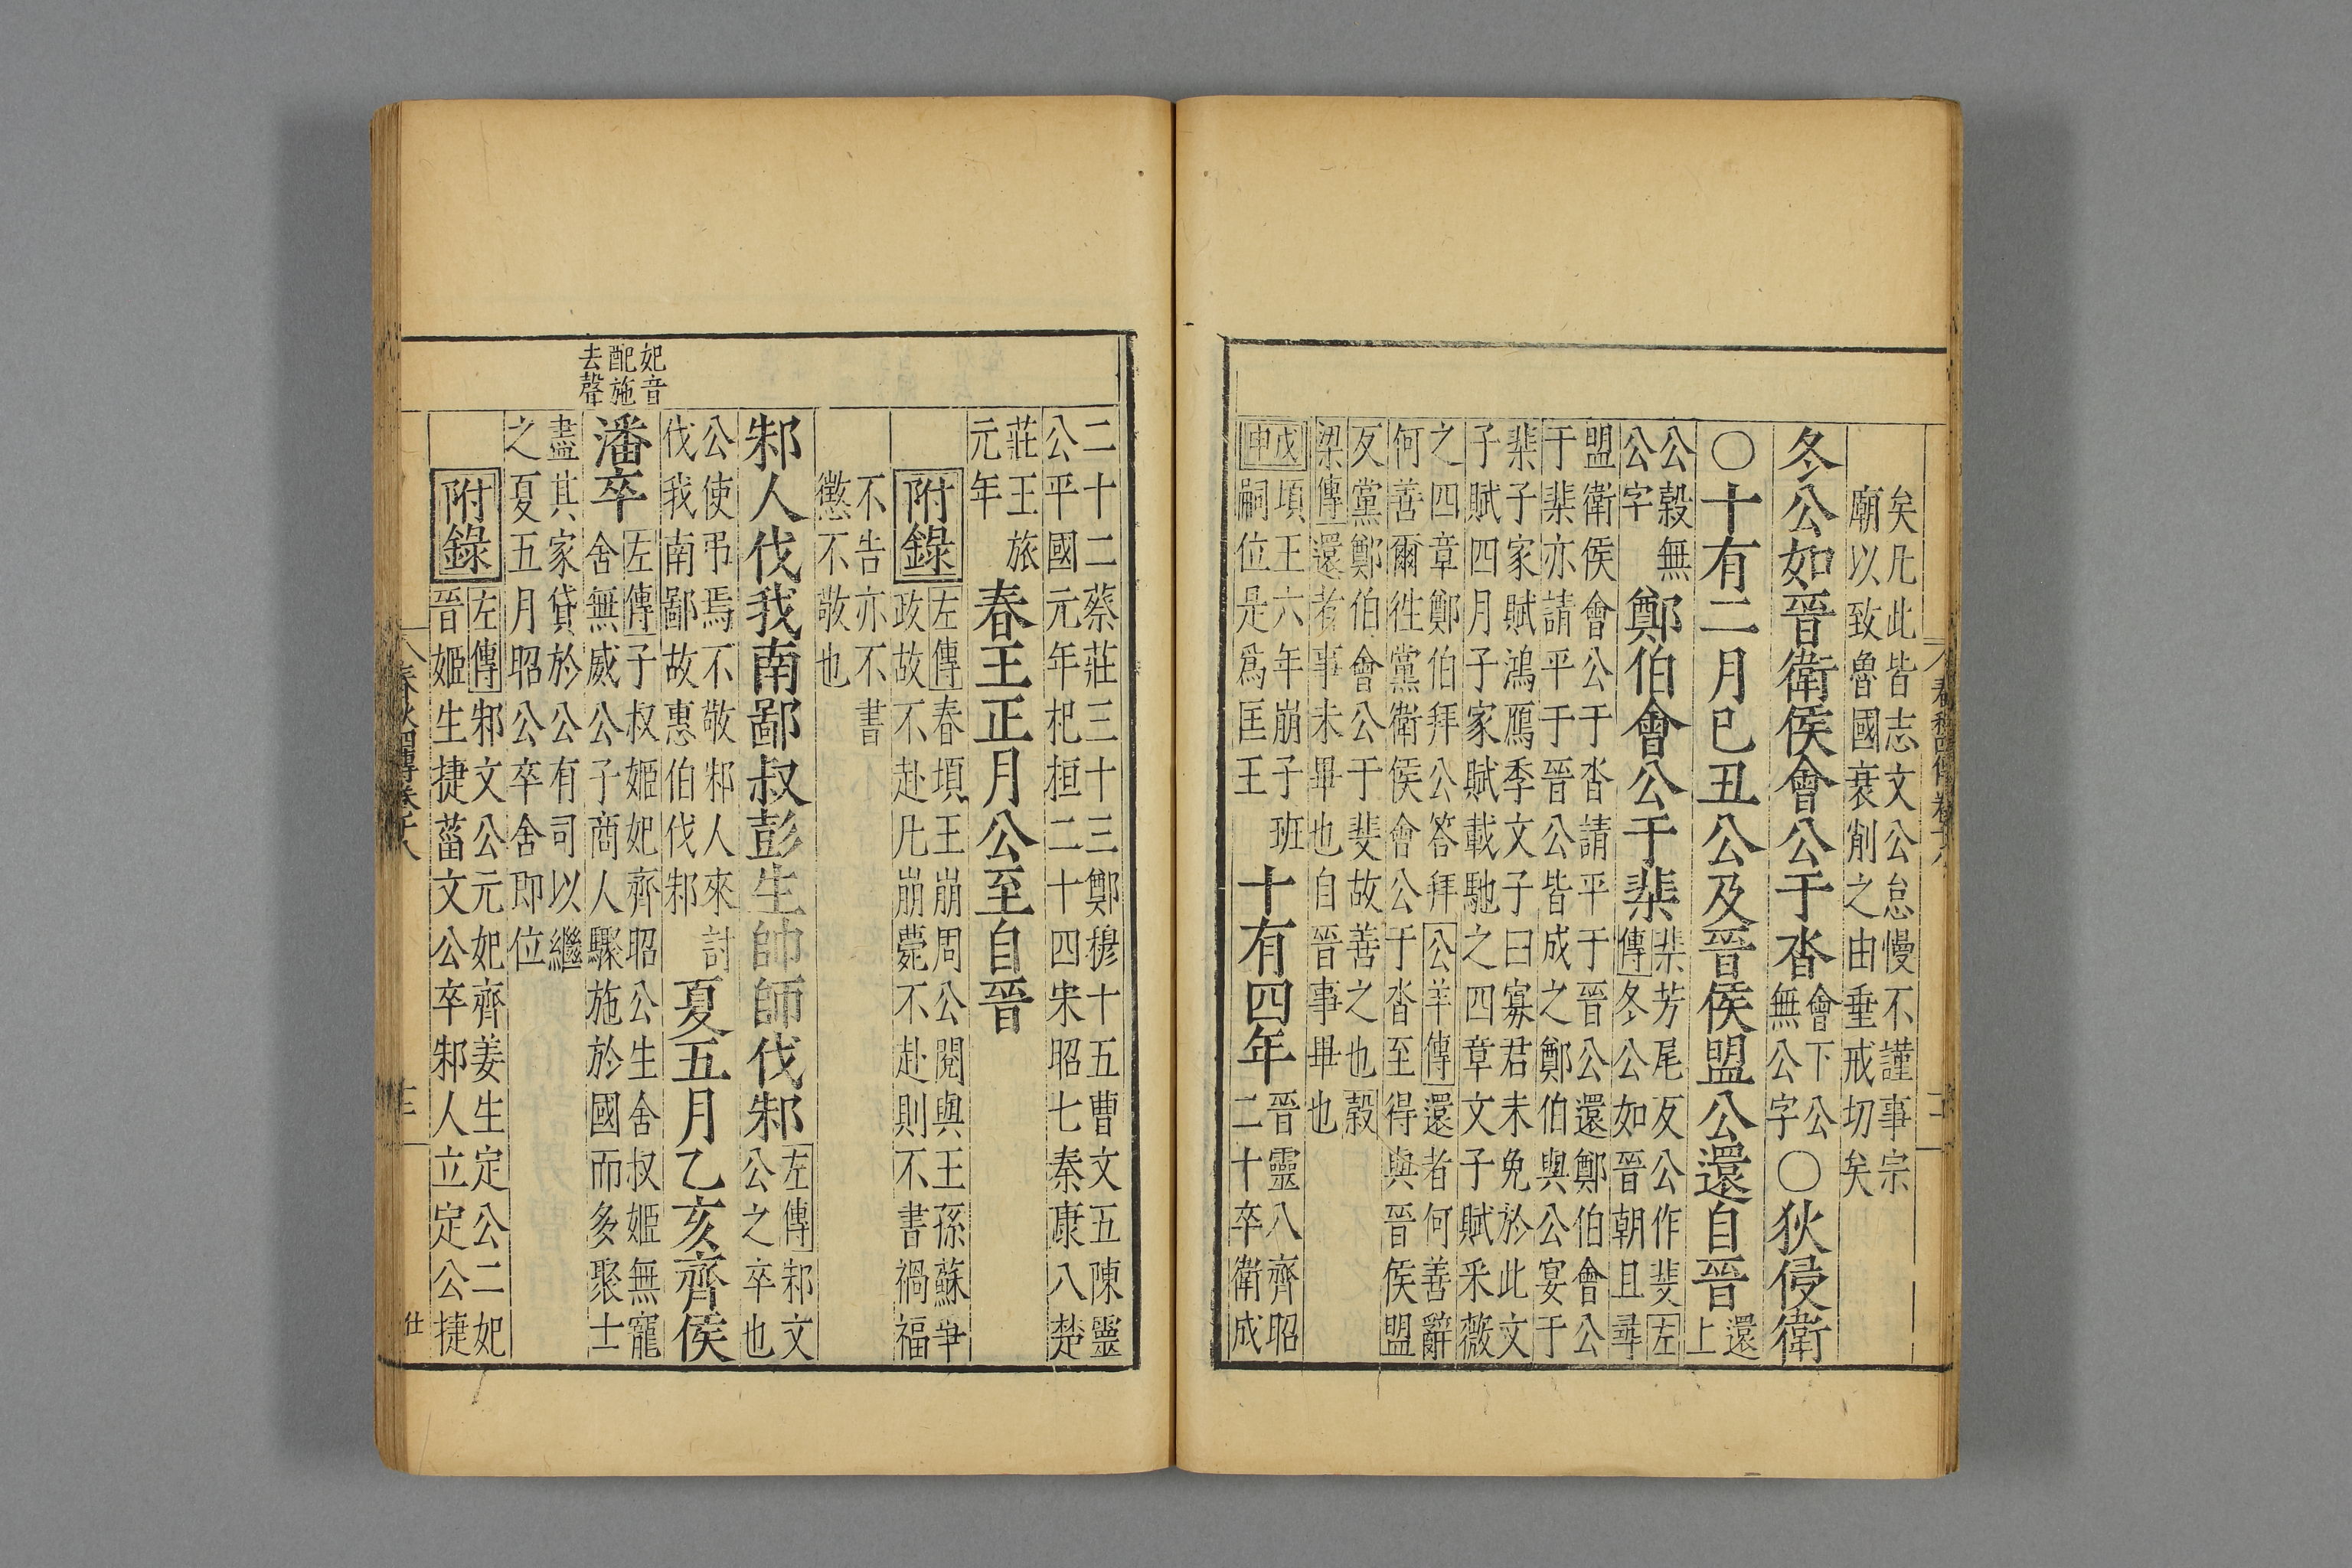 春秋四傳卷十八
矣凡此皆志文公怠慢不謹事宗
廟以致魯國衰削之由垂戒切矣
冬公如晉衛侯會公于沓會下公無公字○狄侵衛
○十有二月已丑公及晉侯盟公還自晉還上
公穀無公字鄭伯會公于棐棐芳尾反公作斐左傳冬公如晉朝且尋
盟衛侯會公于沓請平于晉公還鄭伯會公
于棐亦請平于晉公皆成之鄭伯與公宴于
棐子家賦鴻鴈季文子曰寡君未免於此文
子賦四月子家賦載馳之四章文子賦采薇
之四章鄭伯拜公答拜公羊傳還者何善辭
何善爾往黨衛侯會公于沓至得與晉侯盟
反黨鄭伯會公于斐故善之也穀
梁傳還者事未畢也自晉事畢也
戊申頃王六年崩子班嗣位是爲匡王十有四年晉靈八齊昭二十卒衛成
二十二蔡莊三十三鄭穆十五曹文五陳靈
公平國元年杞桓二十四宋昭七秦康八楚
莊王旅元年春王正月公至自晉
附錄左傳春頃王崩周公閱與王孫蘇爭政故不赴凡崩薨不赴則不書禍福
不告亦不書
懲不敬也
邾人伐我南鄙叔彭生帥師伐邾左傳邾文公之卒也
公使弔焉不敬邾人來討伐我南鄙故惠伯伐邾夏五月乙亥齊侯
妃音
配施
去聲
潘卒左傳子叔姬妃齊昭公生舍叔姬無寵舍無威公子商人驟施於國而多聚士
盡其家貸於公有司以繼
之夏五月昭公卒舍即位
附錄左傳邾文公元妃齊姜生定公二妃晉姬生捷菑文公卒邾人立定公捷
春秋四傳卷十八
十三
仕